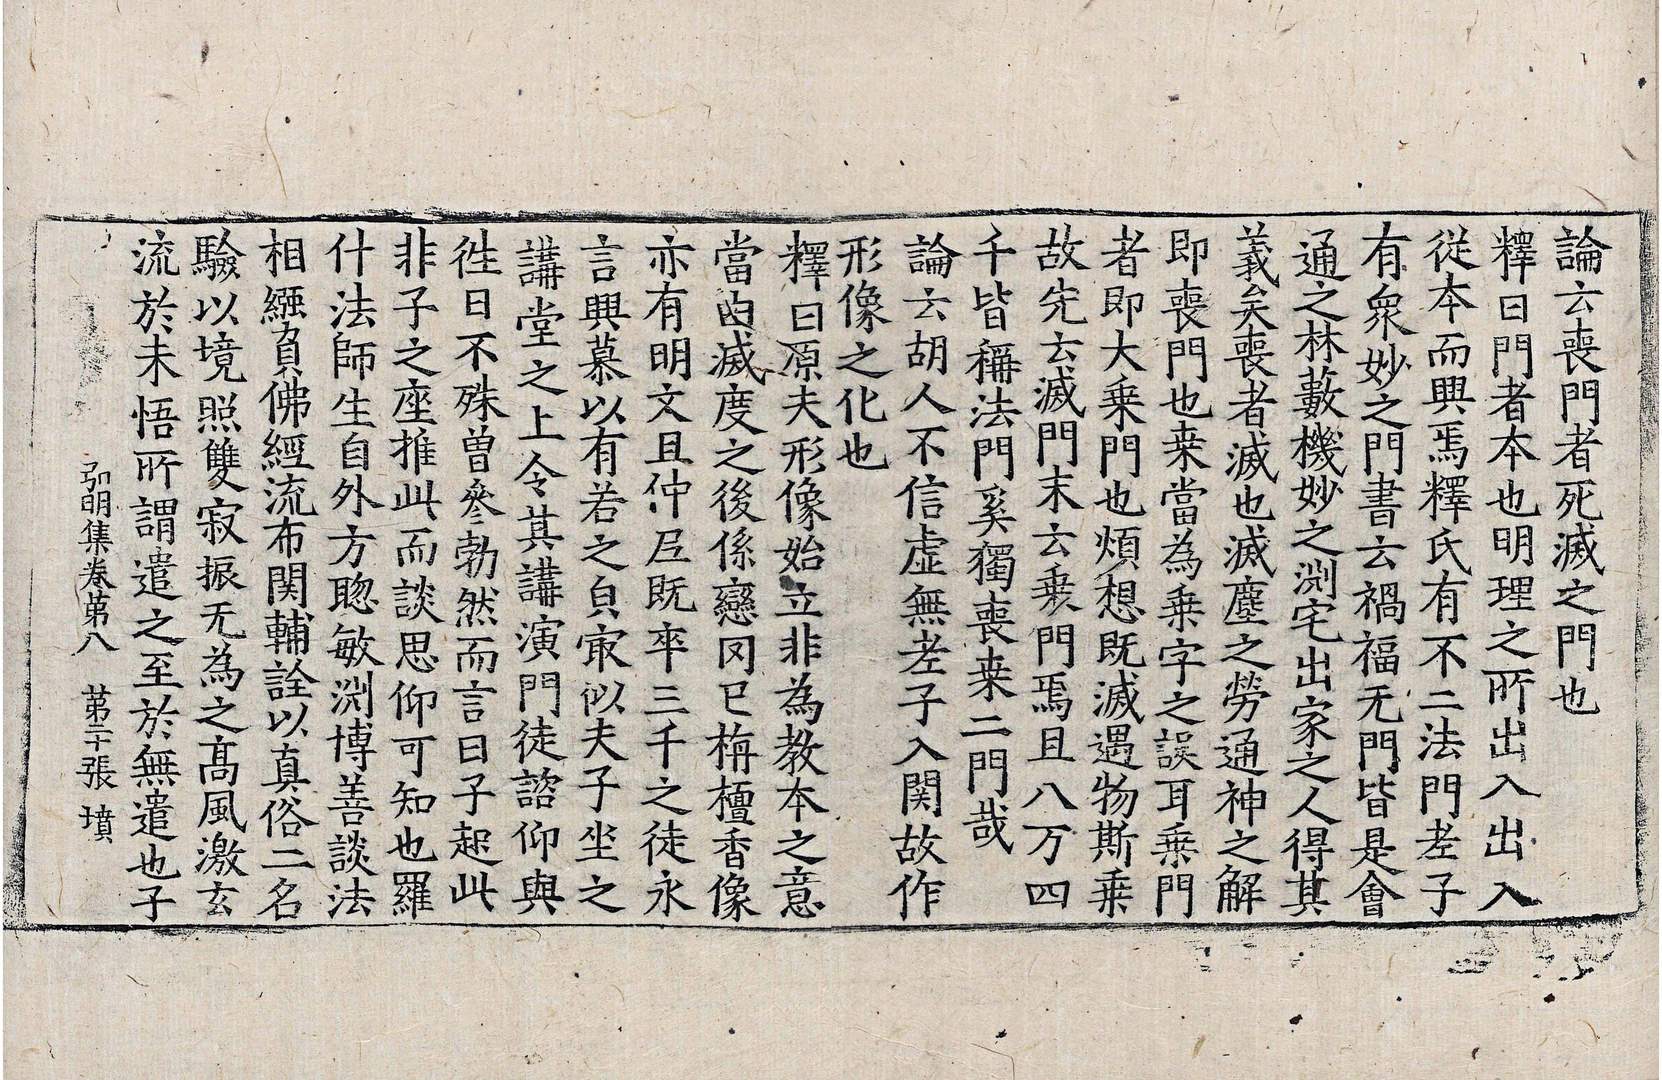 論云喪門者死滅之門也
釋曰門者本也明理之所出入出入
從本而興焉釋氏有不二法門老子
有衆妙之門書云禍福无門皆是會
通之林藪機妙之渕宅出家之人得其
義矣喪者滅也滅塵之勞通神之解
即喪門也桒當為乗字之誤耳乗門
者即大乗門也煩想既滅遇物斯乗
故先云滅門末云乗門焉且八万四
千皆稱法門奚獨喪桒二門哉
論云胡人不信虛無老子入関故作
形像之化也
釋曰原夫形像始立非為教本之意
當由滅度之後係戀罔已栴檀香像
亦有明文且仲尼既卒三千之徒永
言興慕以有若之皃㝡似夫子坐之
講堂之上令其講演門徒諮仰與
徃日不殊曽參勃然而言曰子起此
非子之座推此而談思仰可知也羅
什法師生自外方聦敏渕博善談法
相繦負佛經流布関輔詮以真俗二名
驗以境照雙寂振无為之髙風激玄
流於未悟所謂遣之至於無遣也子
弘明集卷第八 第二十張 墳